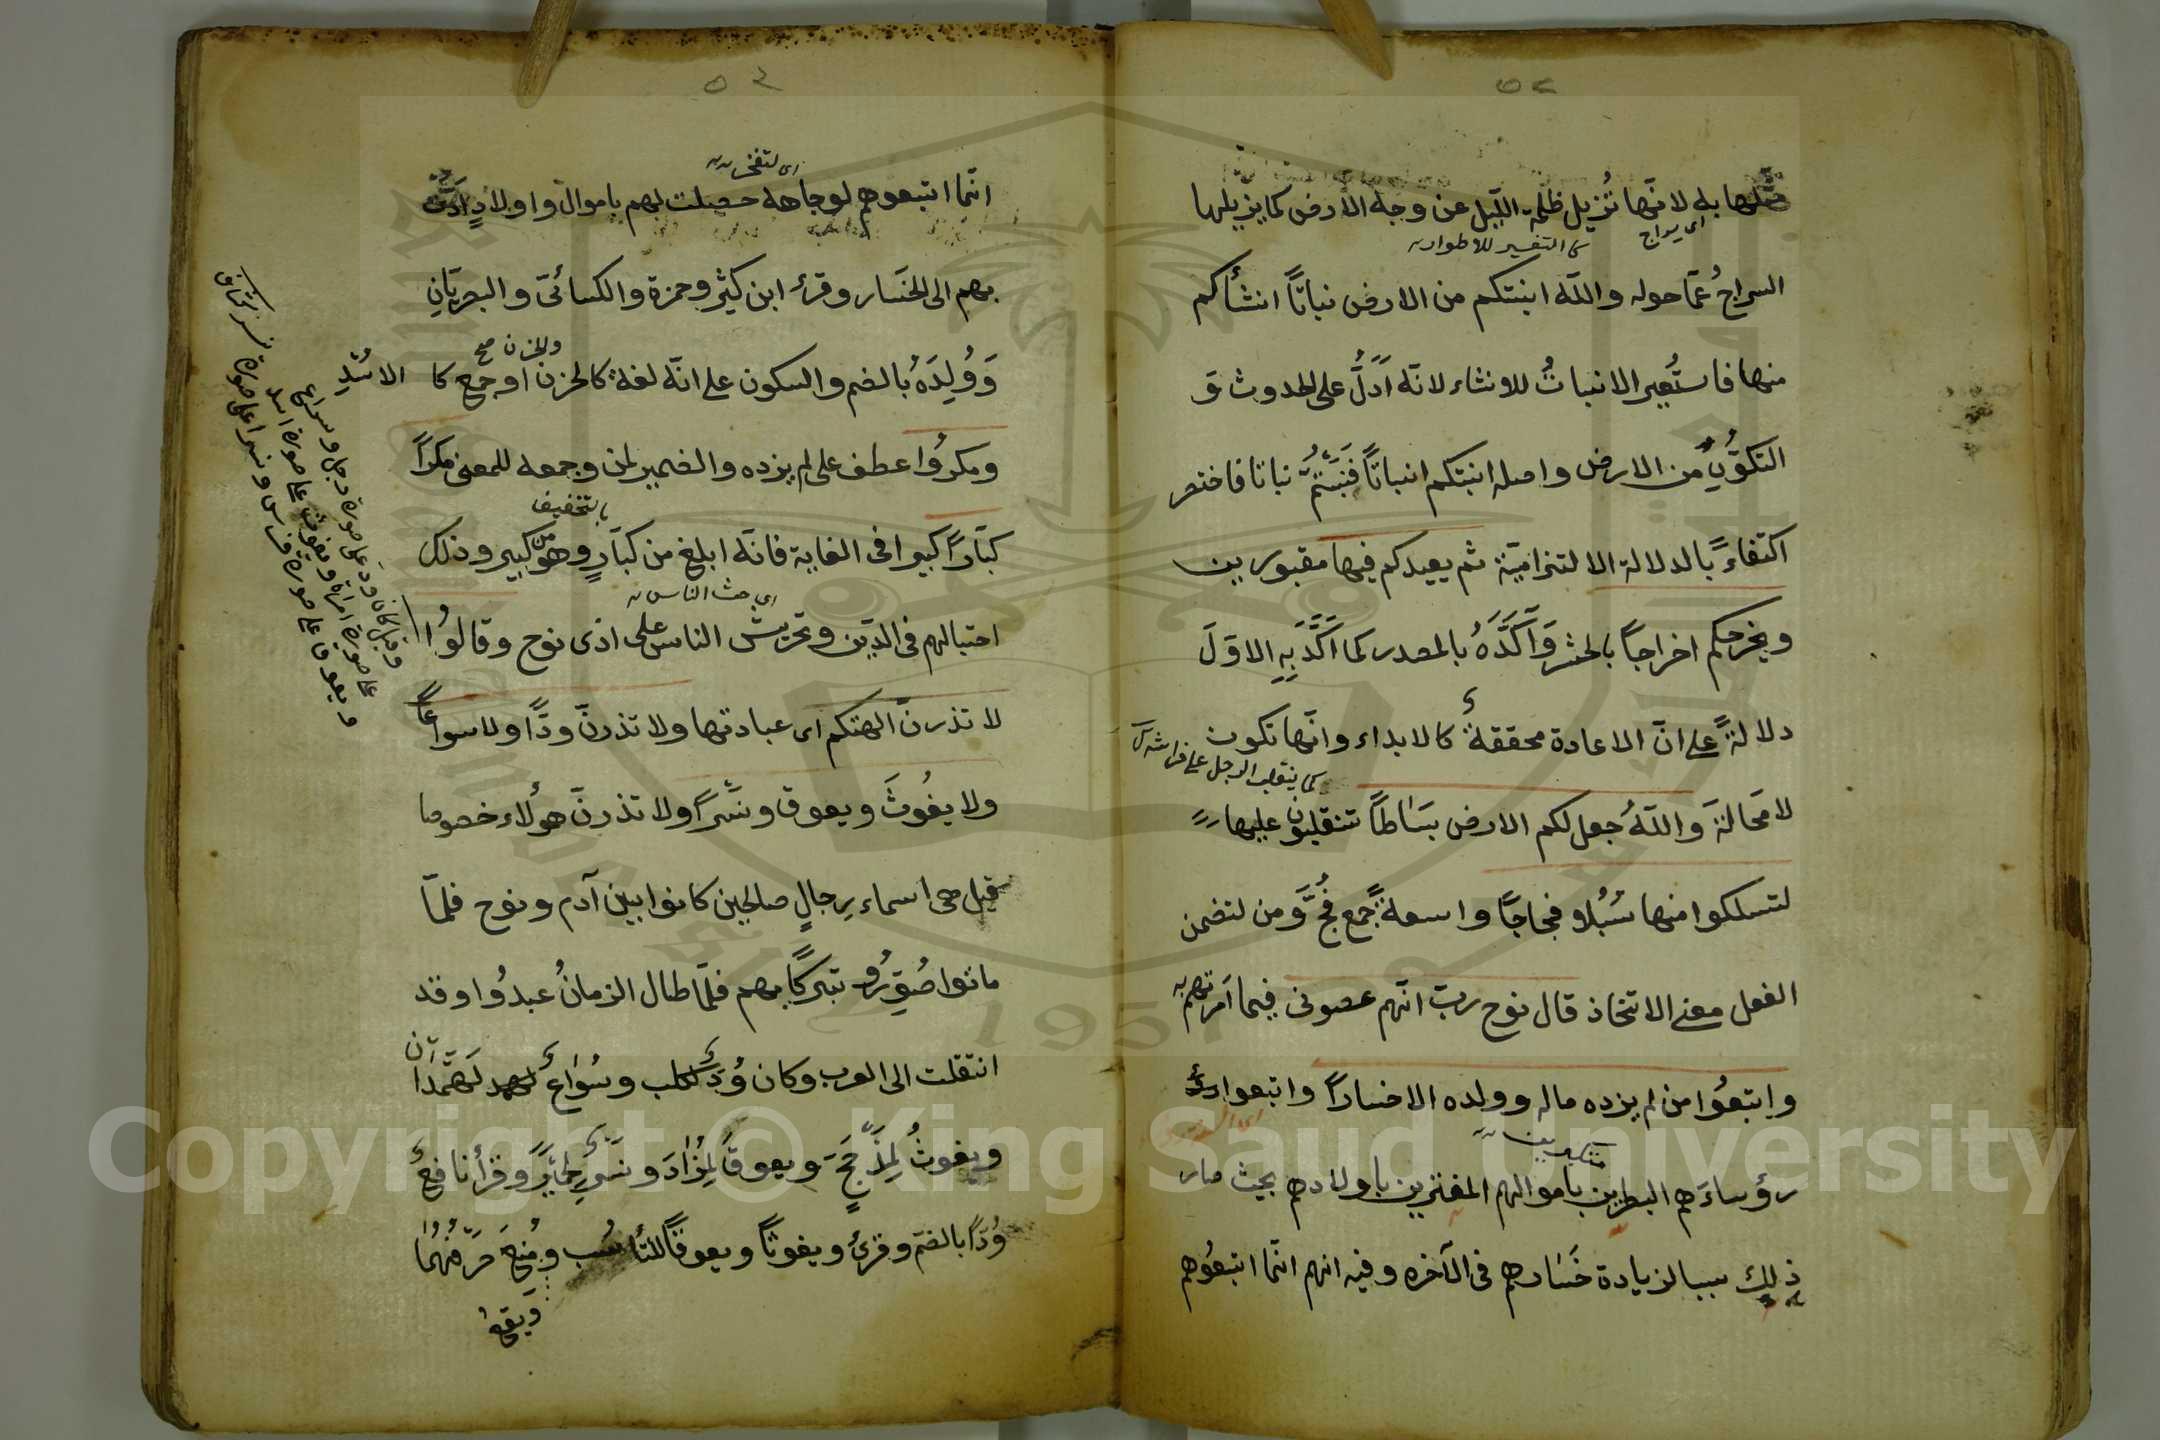 ٥٢
مثّلها به لانّها تُزيل ظلمة اللّيل عن وجه الأرض كما يزيلها
اى سراج
كما التفسير للاطوار
السراجُ عمّا حوله واللّه انبتكم من الارض نباتًا انشأكم
منها فاستُعير الانباتُ للانشاء لانّه اَدَلُّ على الحدوث و
التكوّنِ من الارض واصله انبتكم انباتًا فَنَبَتُّمْ نباتا فاختصر
اكتفاءً بالدلالة الالتزاميّة ثم يعيدكم فيها مقبورين
ويخرجكم اخراجًا بالحشر وَاَكَّدَهُ بالمصدر كما اَكَّدَ بِهِ الاوّلَ
دلالةً على انّ الاعادة محققةٌ كالابداء وانّها تكون
كما ينقلب الرجل على فراشه
لا محَالةَ وَاللّهُ جعل لكم الارض بسَاطًا تتقلبون عليها
لتسلكوا منها سُبُلا فجاجًا واسعةً جمع فجٍّ ومن لتضمن
الفعل معنى الاتخاذ قال نوح ربّ انّهم عصونى فيما اَمَرتهم به
واتبعُوا من لم يزده ماله وولده الا خسارًا واتبعوا
رؤساءَهم البطرين باموالهم المغترين باولادهم بحيث صار
متكبرين
ذلك سببا لزيادة خَسَارهم فى الآخره وفيه انهم انّما اتبعُوهم
٥٣
اى لتفخر
انّما اتبعوهم لوجاهة حصلت لهم باموال واولادٍ اَدَّتْ
بهم الى الخَسَار وقرء ابن كثير وحمزة والكسائىّ والبصريّانِ
والحزن صح
وَوُلْدَهُ بالضم والسكون على انّه لغةٌ كالحزن او جمع كا الاُسْدِ
ومكرُوا عطف على لم يزده والضمير لمن وجمعه للمعنى مكرًا
بالتخفيف
كبّارًا كبيرا فى الغاية فانّه ابلغ من كبَارٍ وهو من كبير وذلك
اى حث الناس
احتيالهم فى الدّين وتحريش الناس على اذى نوح وقالوُا
لا تذرنّ الهتكم اى عبادتها ولا تذرنّ ودًّا ولا سواعًا
ولا يغُوثَ ويعوق ونَسْرًا ولا تذرنّ هؤلاء خصوصا
قيل هى اسماء رجالٍ صالحين كانوا بين آدم ونوح فلمّا
ماتوا صُوِّرُوا تبركًا بهم فلمّا طال الزمانُ عبدُوا وقد
انتقلت الى العرب وكان وُدّ لكلب وسُوَاعٌ لهمدان
ويغوثُ لِمَذْحِجٍ ويعوقُ لِمُرَادَ ونَسْرٌ لِحِمْيَرَ وقرأ نافعٌ
وُدًّا بالضم وقرئ ويغوثًا ويعوقًا للتناسُب ومُنِعَ صَرْفُهُمَا
ويقع
وقيل كان ودّ على صورة رجل وسواع
على صورة امراة ويغوث على صورة اسد
ويعوق على صورة فرس ونسرا على صورة نسر
Copyright © King Saud University
1957